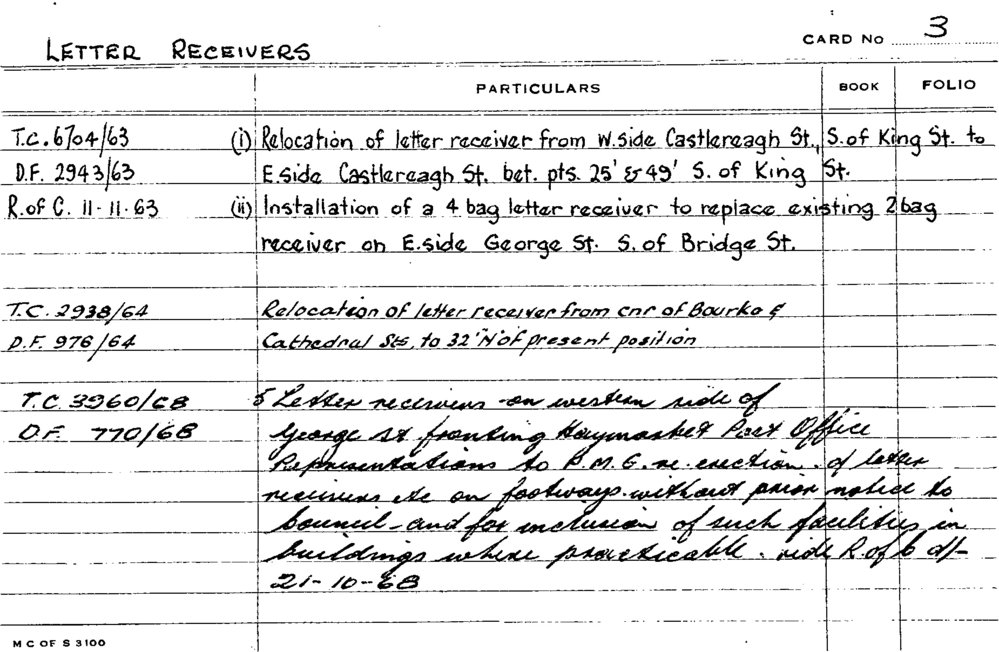 LETTER RECEIVERS CARD No 3
PARTICULARS BOOK FOLIO
T.C. 6704/63 (i) Relocation of letter receiver from W.side Castlereagh St., S. of King St. to
D.F. 2943/63 E.side Castlereagh St. bet. pts. 25' & 49' S. of King St.
R. of C. 11-11-63 (ii) Installation of a 4 bag letter receiver to replace existing 2 bag
receiver on E.side George St. S. of Bridge St.
T.C. 2938/64 Relocation of letter receiver from cnr of Bourke &
D.F. 976/64 Cathedral Sts, to 32' "N" of present position
T.C. 3960/68 5 Letter receivers on western side of
D.F. 770/68 George St fronting Haymarket Post Office
Representations to P.M.G. re. erection of letter
receivers etc on footways without prior notice to
Council - and for inclusion of such facilities in
buildings where practicable. vide R. of C d/-
21-10-68
M C OF S 3100